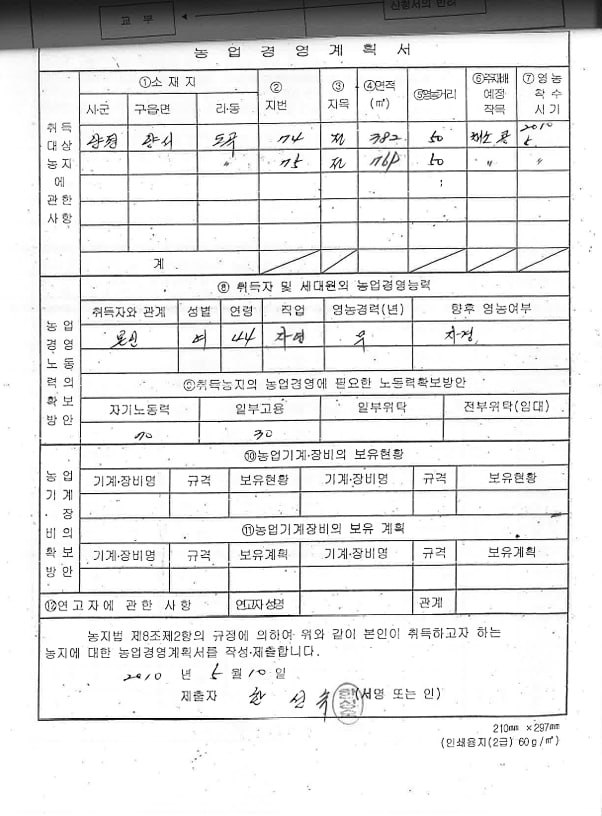 교 부
신청서의 반려
농 업 경 영 계 획 서
취득 대상 농지에 관한 사항
①소 재 지 ② 지번 ③ 지목 ④면적 (㎡) ⑤영농거리 ⑥주재배 예정 작목 ⑦영농 착수 시기
시·군 구·읍면 리·동
도곡 74 전 382 50 2010 5
〃 75 전 50 〃 〃
계
농업 경영 노동력의 확보 방안
⑧ 취득자 및 세대원의 농업경영능력
취득자와 관계 성별 연령 직업 영농경력(년) 향후 영농여부
본인 여 44 무 자경
⑨취득농지의 농업경영에 필요한 노동력확보방안
자기노동력 일부고용 일부위탁 전부위탁(임대)
70 30
농업 기계 장비의 확보 방안
⑩농업기계·장비의 보유현황
기계·장비명 규격 보유현황 기계·장비명 규격 보유현황
⑪농업기계장비의 보유 계획
기계·장비명 규격 보유계획 기계·장비명 규격 보유계획
⑫연고자에 관한 사항 연고자성명 관계
농지법 제8조제2항의 규정에 의하여 위와 같이 본인이 취득하고자 하는
농지에 대한 농업경영계획서를 작성·제출합니다.
2010 년 5 월 10 일
제출자 한 선 (서명 또는 인)
210㎜ ×297㎜
(인쇄용지(2급) 60g/㎡)